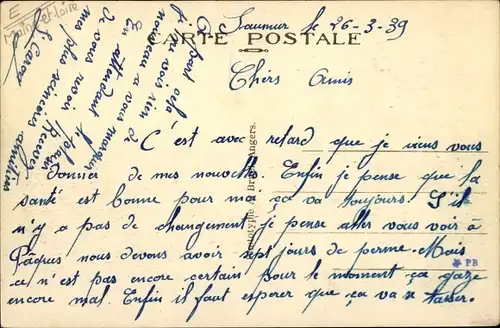 E
Maine et Loire
Saumur le 26-3-39
CARTE POSTALE
Chers Amis
C'est avec retard que je viens vous
donner de mes nouvelles. Enfin je pense que la
santé est bonne pour moi ça va toujours. S'il
n'y a pas de changement je pense aller vous voir à
Pâques nous devons avoir sept jours de perme. Mais
ce n'est pas encore certain pour le moment ça gaze
encore mal. Enfin il faut esperer que ça va se tasser.
PB
à part cela
je ne vois rien de
nouveau a vous marquer
En attendant
de vous revoir
Recevez
mes plus sincères amitiés